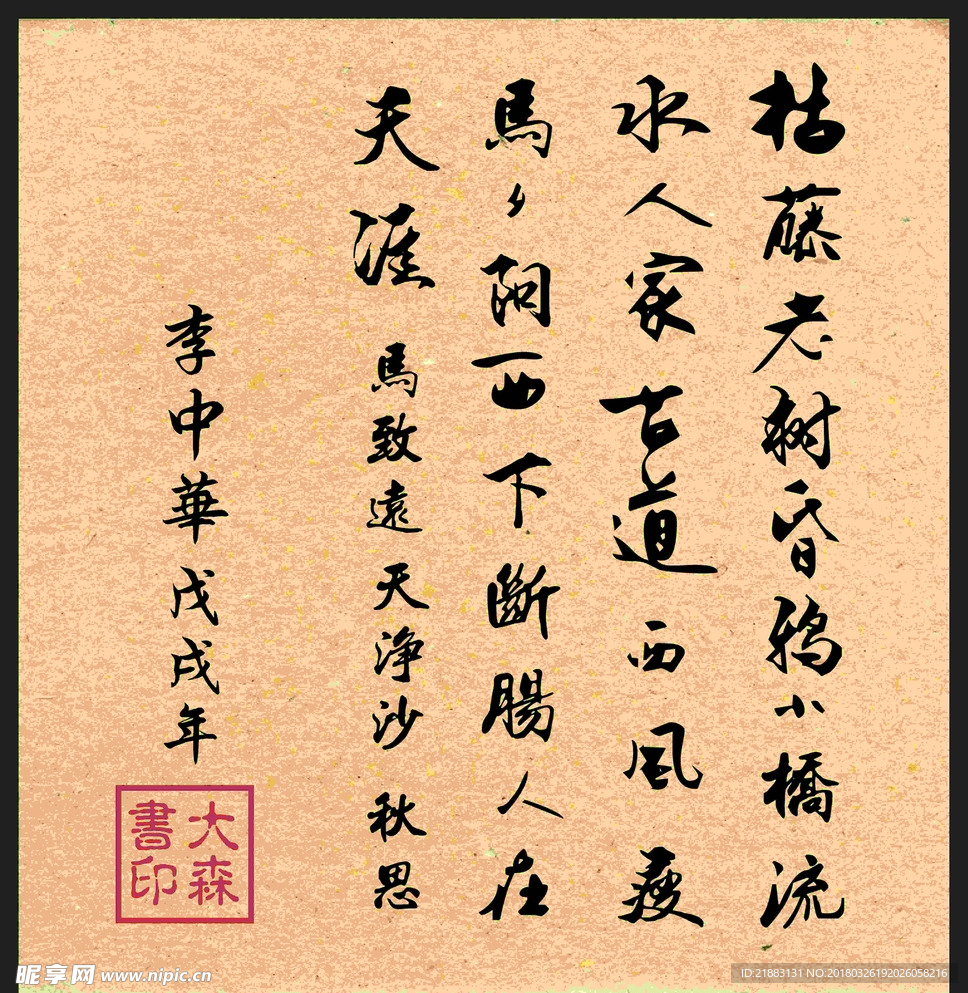 枯藤老树昏鸦小橋流
水人家古道西风瘦
馬夕阳西下斷腸人在
天涯 馬致遠 天浄沙 秋思
李中華 戊戌年
大森
書印
昵享网 www.nipic.cn
ID:21883131 NO:20180326192026058216